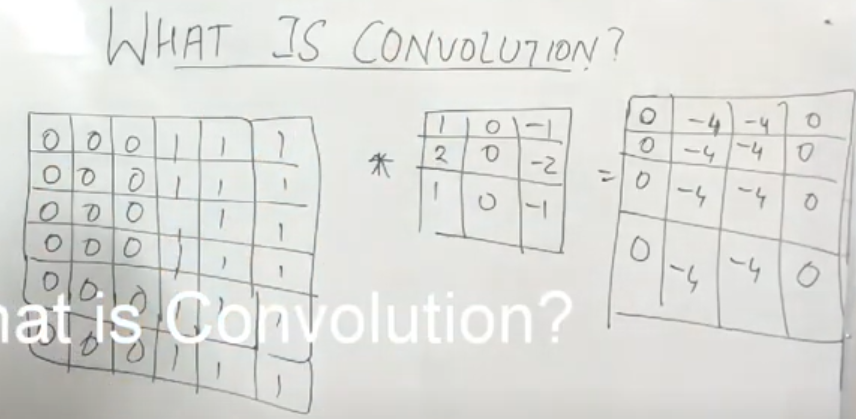 WHAT IS CONVOLUTION?
0 0 0 1 1 1
0 0 0 1 1 1
0 0 0 1 1 1
0 0 0 1 1 1
0 0 0 1 1 1
0 0 0 1 1 1
*
1 0 -1
2 0 -2
1 0 -1
=
0 -4 -4 0
0 -4 -4 0
0 -4 -4 0
0 -4 -4 0
is Convolution?